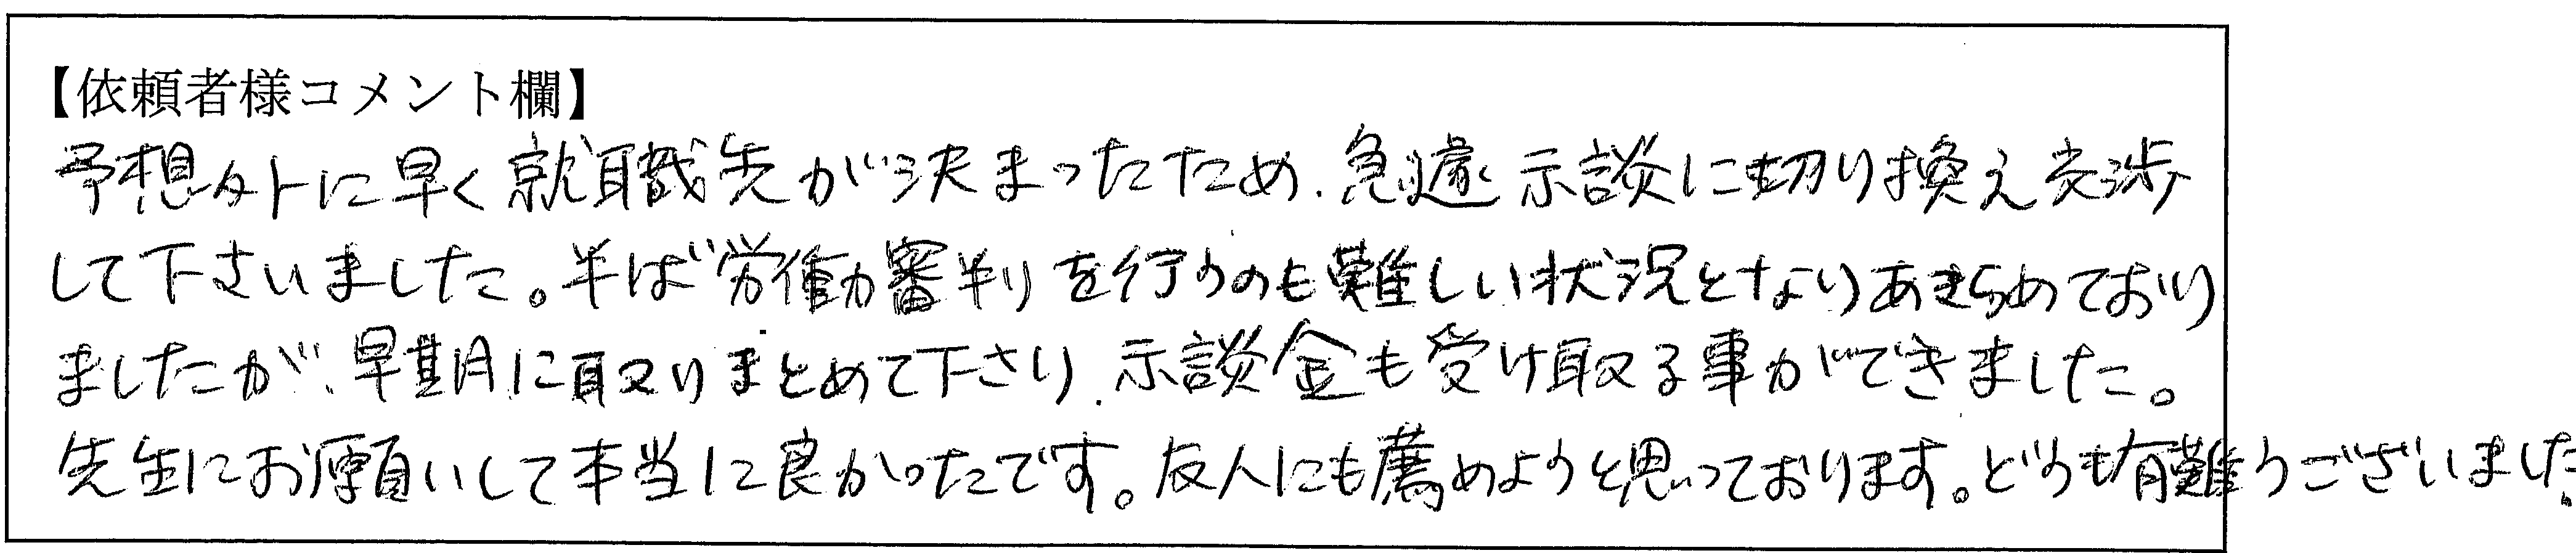 【依頼者様コメント欄】
予想外に早く就職先が決まったため、急遽示談に切り換え交渉
して下さいました。半ば労働審判を行うのも難しい状況となりあきらめており
ましたが、早期に取りまとめて下さり、示談金も受け取る事ができました。
先生にお願いして本当に良かったです。友人にも薦めようと思っております。どうも有難うございました